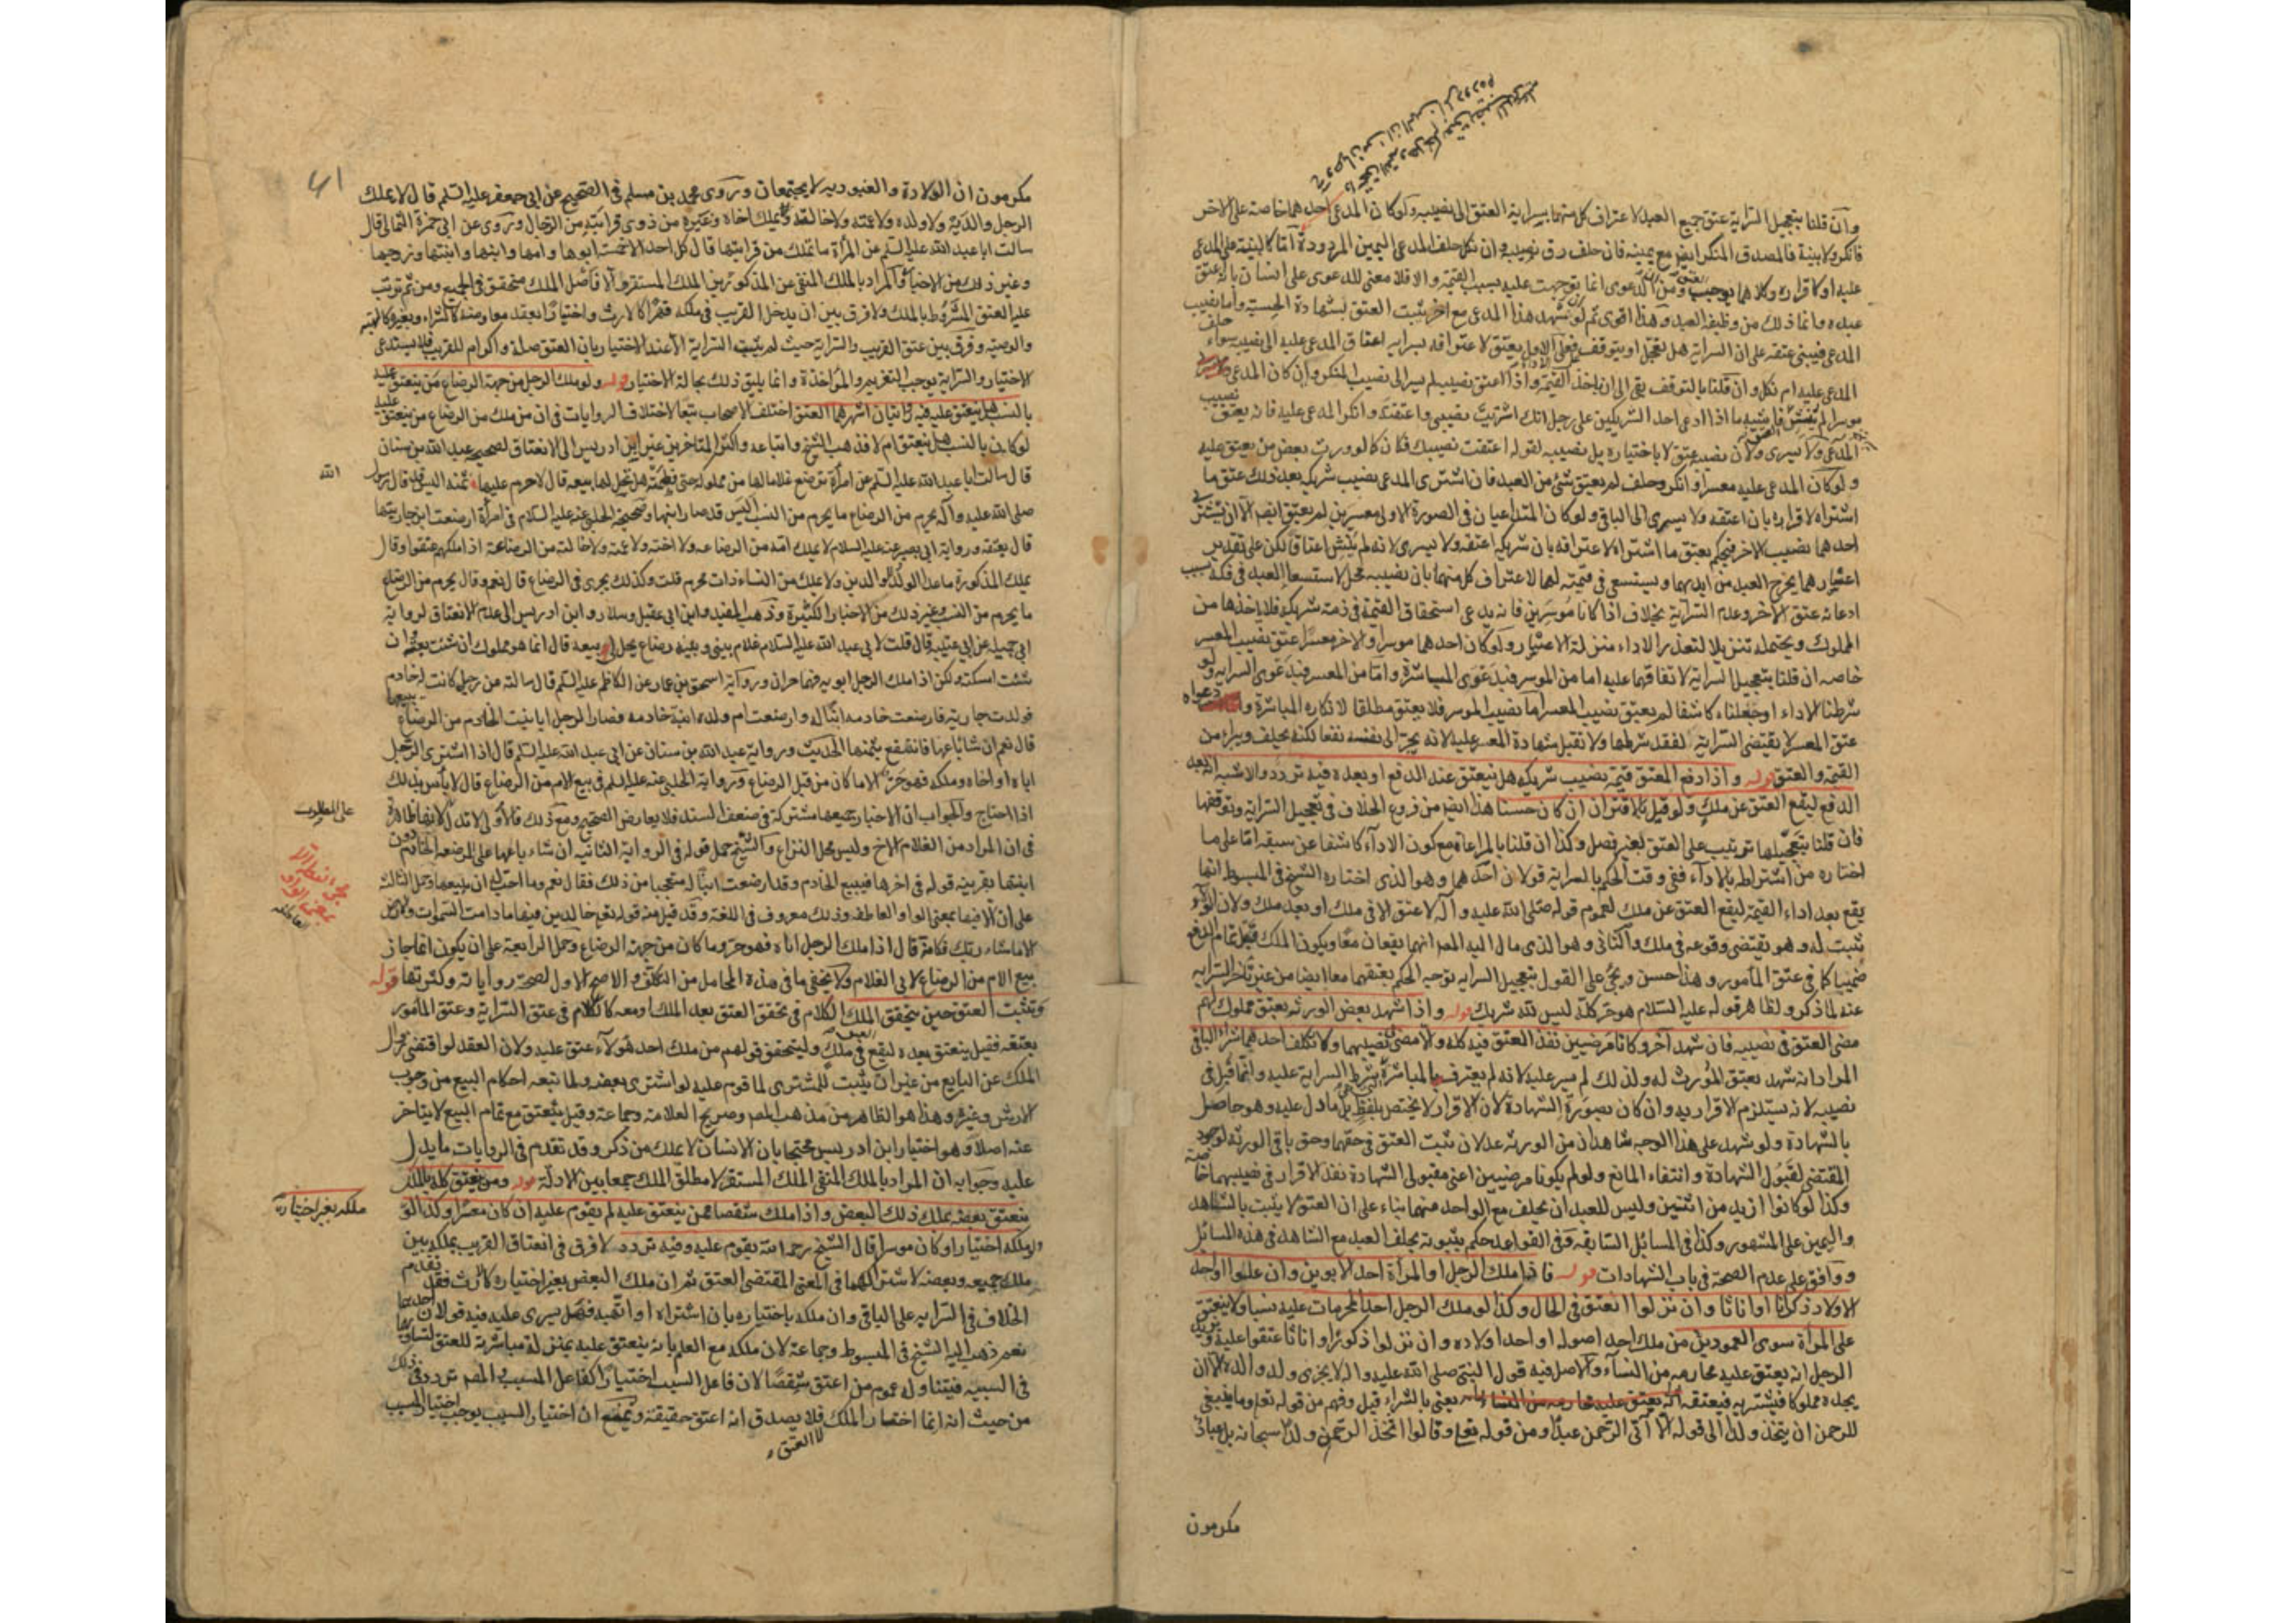 وان قلنا بتعجيل السراية عتق جميع العبد لاعتراف كل منهما بسراية العتق الى نصيبه ولو كان المدعي احدهما خاصة على الاخر
فانكر ولا بينة فالمصدق المنكر ايضا مع يمينه فان حلف رق نصيبه وان نكل حلف المدعي اليمين المردودة اما كالبينة على المدعى
عليه او كاقراره وكلاهما يوجب العتق ومن ان الدعوى انما توجهت عليه بسبب القيمة والا فلا معنى للدعوى على انسان بانه عتق
عبده وانما ذلك من وظيفة العبد وهذا اقوى ثم لو شهد هذا المدعي مع اخر يثبت العتق بشهادة الحسبة واما نصيب
المدعي فيبنى عتقه على ان السراية هل تعجل او يتوقف فعلى الاول يعتق لاعترافه بسراية اعتاق المدعى عليه الى نصيبه سواء حلف
المدعى عليه ام نكل وان قلنا بالتوقف بقي الى ان ياخذ القيمة واذا اعتق نصيبه لم يسر الى نصيب المنكر وان كان المدعي
موسرا لم يعتق ما اذا ادعى احد الشريكين على رجل انك اشتريت نصيبي واعتقته وانكر المدعى عليه فانه يعتق نصيب
المدعي ولا يسرى ولان نصيبه عتق لا باختياره بل نصيبه لقوله اعتقت نصيبك فكان كما لو ورث بعض من يعتق عليه
ولو كان المدعى عليه معسرا وانكر وحلف لم يعتق شئ من العبد فان اشترى المدعي نصيب شريكه بعد ذلك عتق ما
اشتراه لاقراره بان اعتقه ولا يسرى الى الباقي ولو كان المتداعيان في الصورة الاولى معسرين لم يعتق ايضا الا ان يشتري
احدهما نصيب الاخر فيحكم بعتق ما اشتراه لاعترافه بان شريكه اعتقه ولا يسرى لانه لم ينش اعتاقا لكن على تقدير
اعتبارهما يخرج العبد من ايديهما ويستسعى في قيمته لهما لاعتراف كل منهما بان نصيبه محل لاستسعاء العبد في فكه بسبب
ادعائه عتق الاخر وعدم السراية بخلاف اذا كانا موسرين فانه يدعي استحقاق القيمة في ذمة شريكه فلا ياخذها من
المملوك ويحتمله تنزيلا لتعذر الاداء منزلة الاعسار ولو كان احدهما موسرا والاخر معسرا عتق نصيب المعسر
خاصة ان قلنا بتعجيل السراية لاتفاقهما عليه اما من الموسر فبدعوى المباشرة واما من المعسر فبدعوى السراية ولو
شرطنا الاداء او جعلناه كاشفا لم يعتق نصيب المعسر اما نصيب الموسر فلا يعتق مطلقا لانكاره المباشرة ودعواه
عتق المعسر لا يقتضي السراية لفقد شرطها ولا تقبل شهادة المعسر عليه لانه يجر الى نفسه نفعا لكنه يحلف ويبرا من
القيمة والعتق قوله واذا دفع المعتق قيمة نصيب شريكه هل ينعتق عند الدفع او بعده فيه تردد والاشبه انه بعد
الدفع ليقع العتق عن ملك ولو قيل بالاقتران ان كان حسنا هذا ايضا من فروع الخلاف في تعجيل السراية وتوقفها
فان قلنا بتعجيلها ترتب على العتق بغير فصل وكذا ان قلنا بالمراعاة مع كون الاداء كاشفا عن سبقه اما على ما
اختاره من اشتراطه بالاداء ففي وقت الحكم بالسراية قولان احدهما وهو الذي اختاره الشيخ في المبسوط انها
يقع بعد اداء القيمة ليقع العتق عن ملك لعموم قوله صلى الله عليه وآله لا عتق الا في ملك او بعد ملك ولان الولاء
يثبت له وهو يقتضي وقوعه في ملك والثاني وهو الذي مال اليه المصـ انهما يقعان معا ويكون الملك قبل تمام الدفع
ضمنيا كما في عتق المأمور وهذا حسن ويجئ على القول بتعجيل السراية توجيه الحكم بعتقهما معا ايضا من غير تأخر السراية
عنه لما ذكر ولظاهر قوله عليه السلام هو حر كله ليس لله شريك قوله واذا شهد بعض الورثة بعتق مملوك لهم
مضى العتق في نصيبه فان شهد آخر وكانا مرضيين نفذ العتق فيه كله والا مضى نصيبهما ولا تكلف احدهما شراء الباقي
المراد انه شهد بعتق المورث له ولذلك لم يسر عليه لانه لم يعترف بالمباشرة بشرط السراية عليه وانما قبل في
نصيبه لانه يستلزم الاقرار به وان كان بصورة الشهادة لان الاقرار لا يختص بلفظ بل ما دل عليه وهو حاصل
بالشهادة ولو شهد على هذا الوجه شاهدان من الورثة عدلان ثبت العتق في حقهما وحق باقي الورثة لوجود
المقتضي لقبول الشهادة وانتفاء المانع ولو لم يكونا مرضيين اعني مقبولي الشهادة نفذ الاقرار في نصيبهما خاصة
وكذا لو كانوا ازيد من اثنين وليس للعبد ان يحلف مع الواحد منهما بناء على ان العتق لا يثبت بالشاهد
واليمين على المشهور وكذا في المسائل السابقة وفي القواعد حكم بثبوته بحلف العبد مع الشاهد في هذه المسائل
ووافق على عدم الصحة في باب الشهادات قوله فاذا ملك الرجل او المرأة احد الابوين وان علوا او احد
الاولاد ذكرانا او اناثا وان نزلوا انعتق في الحال وكذا لو ملك الرجل احد المحرمات عليه نسبا ولا ينعتق
على المرأة سوى العمودين من ملك احد اصوله او احد اولاده وان نزلوا ذكورا او اناثا عتقوا عليه ويزيد
الرجل انه يعتق عليه محارمه من النساء والاصل فيه قول النبي صلى الله عليه وآله لا يجزى ولد والده الا ان
يجده مملوكا فيشتريه فيعتقه يعني بالشراء قيل وفهم من قوله تعالى وما ينبغي
للرحمن ان يتخذ ولدا الى قوله الا آتي الرحمن عبدا ومن قوله تعالى وقالوا اتخذ الرحمن ولدا سبحانه بل عباد
مكرمون
41
مكرمون ان الولادة والعبودية لا يجتمعان وروى محمد بن مسلم في الصحيح عن ابي جعفر عليه السلم قال لا يملك
الرجل والديه ولا ولده ولا عمته ولا خالته ويملك اخاه وغيره من ذوي قرابته من الرجال وروى عن ابي حمزة الثمالي قال
سالت ابا عبد الله عليه السلم عن المرأة ما تملك من قرابتها قال كل احد الا خمسة ابوها وامها وابنها وابنتها وزوجها
وغير ذلك من الاخبار والمراد بالملك المنفي عن المذكورين الملك المستقر والا فاصل الملك متحقق في الجميع ومن ثم ترتب
عليه العتق المشروط بالملك ولا فرق بين ان يدخل القريب في ملكه قهرا كالارث واختيارا بعقد معاوضة كالشراء وبغيره كالهبة
والوصية وفرق بين عتق القريب والسراية حيث لم يثبت السراية الا عند الاختيار بان العتق صلة واكرام للقريب فلا يستدعي
الاختيار والسراية يوجب التغريم والمؤاخذة وانما يليق ذلك بحالة الاختيار قوله ولو ملك الرجل من جهة الرضاع من ينعتق عليه
بالنسب هل ينعتق عليه فيه روايتان اشهرهما العتق اختلف الاصحاب تبعا لاختلاف الروايات في ان من ملك من الرضاع من ينعتق عليه
لو كان بالنسب هل ينعتق ام لا فذهب الشيخ واتباعه واكثر المتاخرين غير ابن ادريس الى الانعتاق لصحيحة عبد الله بن سنان
قال سالت ابا عبد الله عليه السلم عن امرأة ترضع غلاما لها من مملوكة حتى فطمته هل يحل لها بيعه قال لا حرم عليها ثمنه اليس قد قال رسول الله
صلى الله عليه وآله يحرم من الرضاع ما يحرم من النسب اليس قد صار ابنها وصحيحة الحلبي عنه عليه السلام في امرأة ارضعت ابن جاريتها
قال يعتقه ورواية ابي بصير عنه عليه السلام لا يملك امه من الرضاعه ولا اخته ولا عمته ولا خالته من الرضاعة اذا ملكهم عتقوا وقال
يملك المذكورة ما عدا الولد والوالدين ولا يملك من النساء ذات محرم قلت وكذلك يجري في الرضاع قال نعم وقال يحرم من الرضاع
ما يحرم من النسب وغير ذلك من الاخبار الكثيرة وذهب المفيد وابن ابي عقيل وسلار وابن ادريس الى عدم الانعتاق لرواية
ابي جميلة عن ابي عتيبة قال قلت لابي عبد الله عليه السلام غلام بيني وبينه رضاع يحل لي بيعه قال انما هو مملوك ان شئت بعته وان
شئت امسكته ولكن اذا ملك الرجل ابويه فهما حران ورواية اسحق بن عمار عن الكاظم عليه السلم قال سالته عن رجل كانت له خادم
فولدت جارية فارضعت خادمه ابنا له وارضعت ام ولده ابنة خادمه فصار الرجل ابا بنت الخادم من الرضاع يبيعها
قال نعم ان شاء باعها فانتفع بثمنها الحديث ورواية عبد الله بن سنان عن ابي عبد الله عليه السلم قال اذا اشترى الرجل
اباه او اخاه وملكه فهو حر الا ما كان من قبل الرضاع ورواية الحلبي عنه عليه السلم في بيع الام من الرضاع قال لا بأس بذلك
اذا احتاج والجواب ان الاخبار جميعها مشتركة في ضعف السند فلا يعارض الصحيح ومع ذلك فالاولى لا تدل لانها ظاهرة على المطلوب
في ان المراد من الغلام الاخ وليس محل النزاع والشيخ حمل قوله في الرواية الثانية ان شاء باعها على المرضعة الخادم دون
ابنتها بقرينة قوله في اخرها فيبيع الخادم وقد ارضعت ابنا له متعجبا من ذلك فقال نعم وما احب له ان يبيعها وحمل الثالثة
على ان الا فيها بمعنى الواو العاطفة وذلك معروف في اللغة وقد قيل منه قوله تعالى خالدين فيها ما دامت السموات والارض
الا ما شاء ربك فكانه قال اذا ملك الرجل اباه فهو حر وما كان من جهة الرضاع وحمل الرابعة على ان يكون انما جاز
بيع الام من الرضاع لابي الغلام ولا يخفى ما في هذه المحامل من التكلف والاصح الاول لصحة رواياته وكثرتها قوله
ويثبت العتق حين يتحقق الملك الكلام في تحقق العتق بعد الملك او معه كالكلام في عتق السراية وعتق المأمور
بعتقه فقيل ينعتق بعده ليقع العتق في ملك وليتحقق قولهم من ملك احد هؤلاء عتق عليه ولان العقد لو اقتضى زوال
الملك عن البايع من غير ان يثبت للمشتري لما قوم عليه لو اشترى بعضه ولما تبعه احكام البيع من وجوب
الارش وغيره وهذا هو الظاهر من مذهب المصـ وصريح العلامة وجماعة وقيل ينعتق مع تمام البيع لا يتاخر
عنه اصلا وهو اختيار ابن ادريس محتجا بان الانسان لا يملك من ذكر وقد تقدم في الروايات ما يدل
عليه وجوابه ان المراد بالملك المنفي الملك المستقر لا مطلق الملك جمعا بين الادلة قوله ومن ينعتق كله بالملك
ينعتق بعضه بملك ذلك البعض واذا ملك شقصا ممن ينعتق عليه لم يقوم عليه ان كان معسرا وكذا لو ملكه بغير اختياره
ولو ملكه اختيارا وكان موسرا قال الشيخ رحمه الله يقوم عليه وفيه تردد لا فرق في انعتاق القريب بملكه بين
ملك جميعه وبعضه لاشتراكهما في المعنى المقتضي العتق ثم ان ملك البعض بغير اختياره كالارث فقد تقدم
الخلاف في السراية على الباقي وان ملكه باختياره بان اشتراه او اتهبه فهل يسرى عليه فيه قولان احدهما
نعم ذهب اليه الشيخ في المبسوط وجماعة لان ملكه مع العلم بانه ينعتق عليه بمنزلة مباشرته للعتق لتساويهما
في السببية فيتناوله عموم من اعتق شقصا لان فاعل السبب اختيارا كفاعل المسبب والمصـ تردد في ذلك
من حيث انه انما اختار الملك لا العتق فلا يصدق انه اعتق حقيقة ويمنع ان اختيار السبب يوجب اختيار المسبب